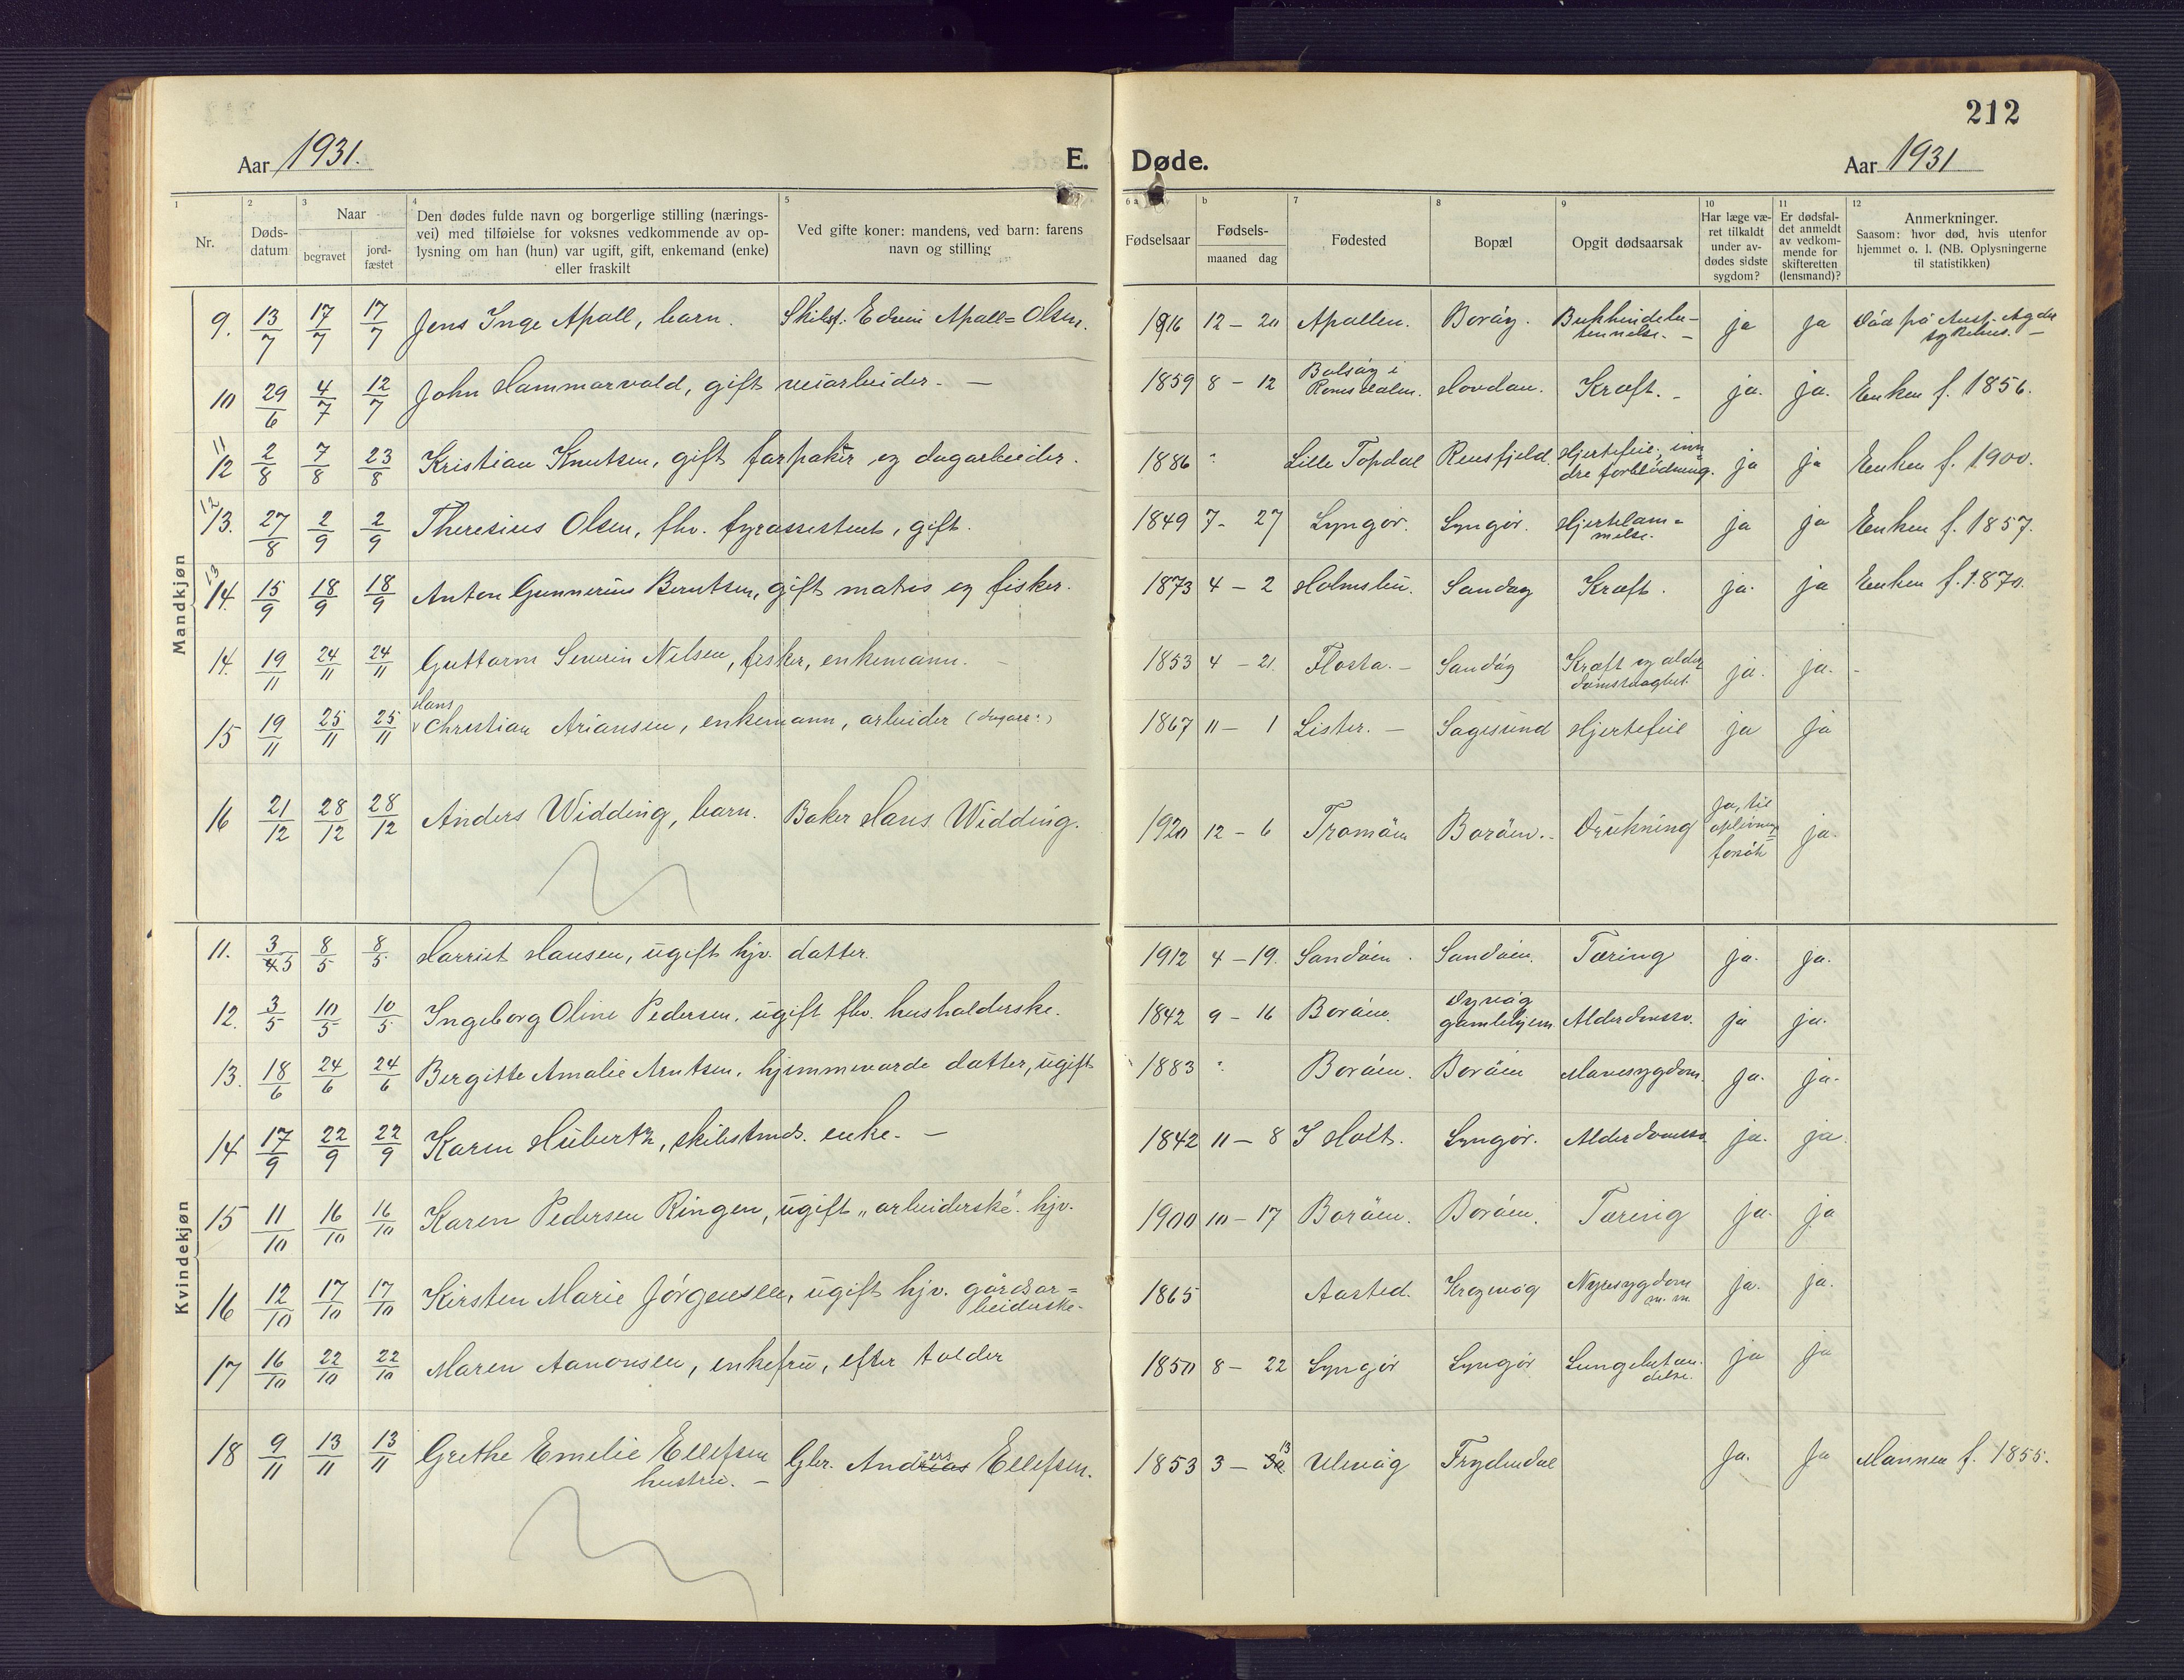 212
Aar 1931.
E. Døde.
Aar 1931
1 2 3 4 5 6 a b 7 8 9 10 11 12
Nr.
Døds-
datum
Naar
begravet
jord-
fæstet
Den dødes fulde navn og borgerlige stilling (nærings-
vei) med tilføielse for voksnes vedkommende av op-
lysning om han (hun) var ugift, gift, enkemand (enke)
eller fraskilt
Ved gifte koner: mandens, ved barn: farens
navn og stilling
Fødselsaar
Fødsels-
maaned dag
Fødested
Bopæl
Opgit dødsaarsak
Har læge væ-
ret tilkaldt
under av-
dødes sidste
sygdom?
Er dødsfal-
det anmeldt
av vedkom-
mende for
skifteretten
(lensmand)?
Anmerkninger.
Saasom: hvor død, hvis utenfor
hjemmet o. l. (NB. Oplysningerne
til statistikken)
Mandkjøn
9. 13/7 17/7 17/7 Jens Inge Apall, barn. Skibsf. Edvin Apall=Olsen. 1916 12 - 20 Apallen. Borøy. Bukhindebe-
tennelse. - ja ja Død på Aust-Agder
sykehus. -
10 29/6 4/7 12/7 John Hammarvold, gift veiarbeider. - 1859 8 - 12 Bolsøy i
Romsdalen. Hovdan. Kræft. - ja. ja. Enken f. 1856.
11
12 2/8 7/8 23/8 Kristian Knutsen, gift farpakter og dagarbeider. 1886 " Lille Topdal Reusfjeld. Hjertefeil, inn=
dre forblødning. ja ja Enken f. 1900.
12
13. 27/8 2/9 2/9 Theresius Olsen, fhv. fyrassistent, gift. 1849 7 - 27 Lyngør. Lyngør. Hjertelam=
melse. ja ja Enken f. 1857.
13
14. 15/9 18/9 18/9 Anton Gunnerius Berntsen, gift matros og fisker. 1873 4 - 2 Holmslien. Sandøy Kræft. ja. ja Enken f. 1870.
14. 19/11 24/11 24/11 Guttorm Severin Nilsen, fisker, enkemann. - 1853 4 - 21. Flosta. - Sandøy Kræft og alder
domssvaghet. ja. ja. -
Hans
15 19/11 25/11 25/11 v Christian Ariansen, enkemann, arbeider (dagarb:) 1867 11 - 1 Lister. - Sagesund Hjertefeil ja ja
16 21/12 28/12 28/12 Anders Widding, barn. Baker Hans Widding. 1920 12 - 6 Tromøen Borøen. - Drukning Ja, til
oplivnings=
forsøk ja.
Kvindekjøn
11. 3/45 8/5 8/5 Harriet Hansen, ugift hjv. datter. 1912 4 - 19. Sandøen. Sandøen. Tæring ja. ja.
12. 3/5 10/5 10/5 Ingeborg Oline Pedersen, ugift fhv. husholderske. 1842 9 - 16 Borøen. Dyvåg
gamlehjem Alderdomssv. ja ja.
13. 18/6 24/6 24/6 Bergitte Amalie Arntsen, hjemmevarde datter, ugift 1883 " Borøen. Borøen Mavesygdom. ja. ja.
14 17/9 22/9 22/9 Karen Hübertz, skibstmds. enke. - 1842 11 - 8 I Holt. Lyngør. Alderdomssv. ja. ja
15 11/10 16/10 16/10 Karen Pedersen Ringen, ugift „arbeiderske". hjv. 1900 10 - 17 Borøen. Borøen. Tæring ja. ja
16 12/10 17/10 17/10 Kirsten Marie Jørgensen, ugift hjv. gårdsar=
beiderske. 1865 Aasted. Krogvåg Nyresygdom
m. m ja. ja.
17 16/10 22/10 22/10 Maren Aanonsen, enkefru, efter tolder 1850 8 - 22 Lyngør Lyngør Lungebetæn-
delse. ja ja
18 9/11 13/11 13/11 Grethe Emelie Ellefsen
hustru. - Gbr. Andreas ers Ellefsen. 1853 3 - 13 Ulevåg Frydendal Ja. Ja Mannen f. 1855.